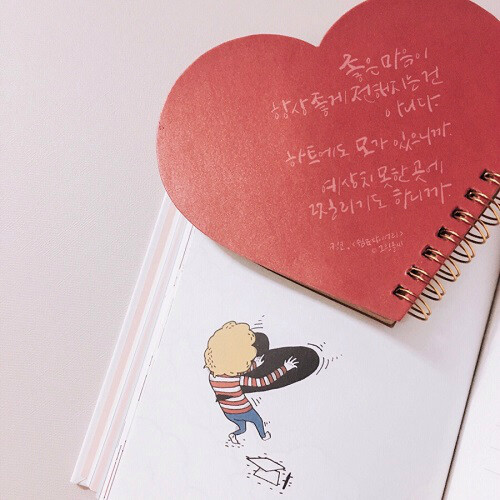 좋은 마음이
항상 좋게 전해지는 건
아니다.
하트에도 모가 있으니까.
예상치 못한 곳에
찔리기도 하니까